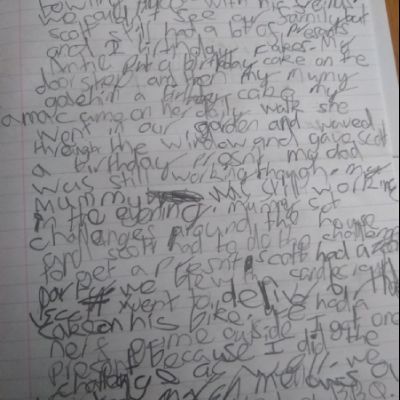 bowling place with his friends
we can't see our family but
scott still had a lot of presents
and I birthday cakes. My
Antie put a birthday cake on the
door step and then my mumy
gave him a birthday cake my
a mac came on her daily walk she
went in our garden and waved
through the window and gave scott
a birthday presnt my dad
was still working though. my
mummy was still working
in the evening. mummy set
challenges around the house
and scott had to do the challenge
to get a presnt scott had a
party we blew the candels
scott went to deliver all the
cakes on his bike. we had a
nerf game outside I got one
present because I did the
challenges as well. we
had marshmellows
BBQ.